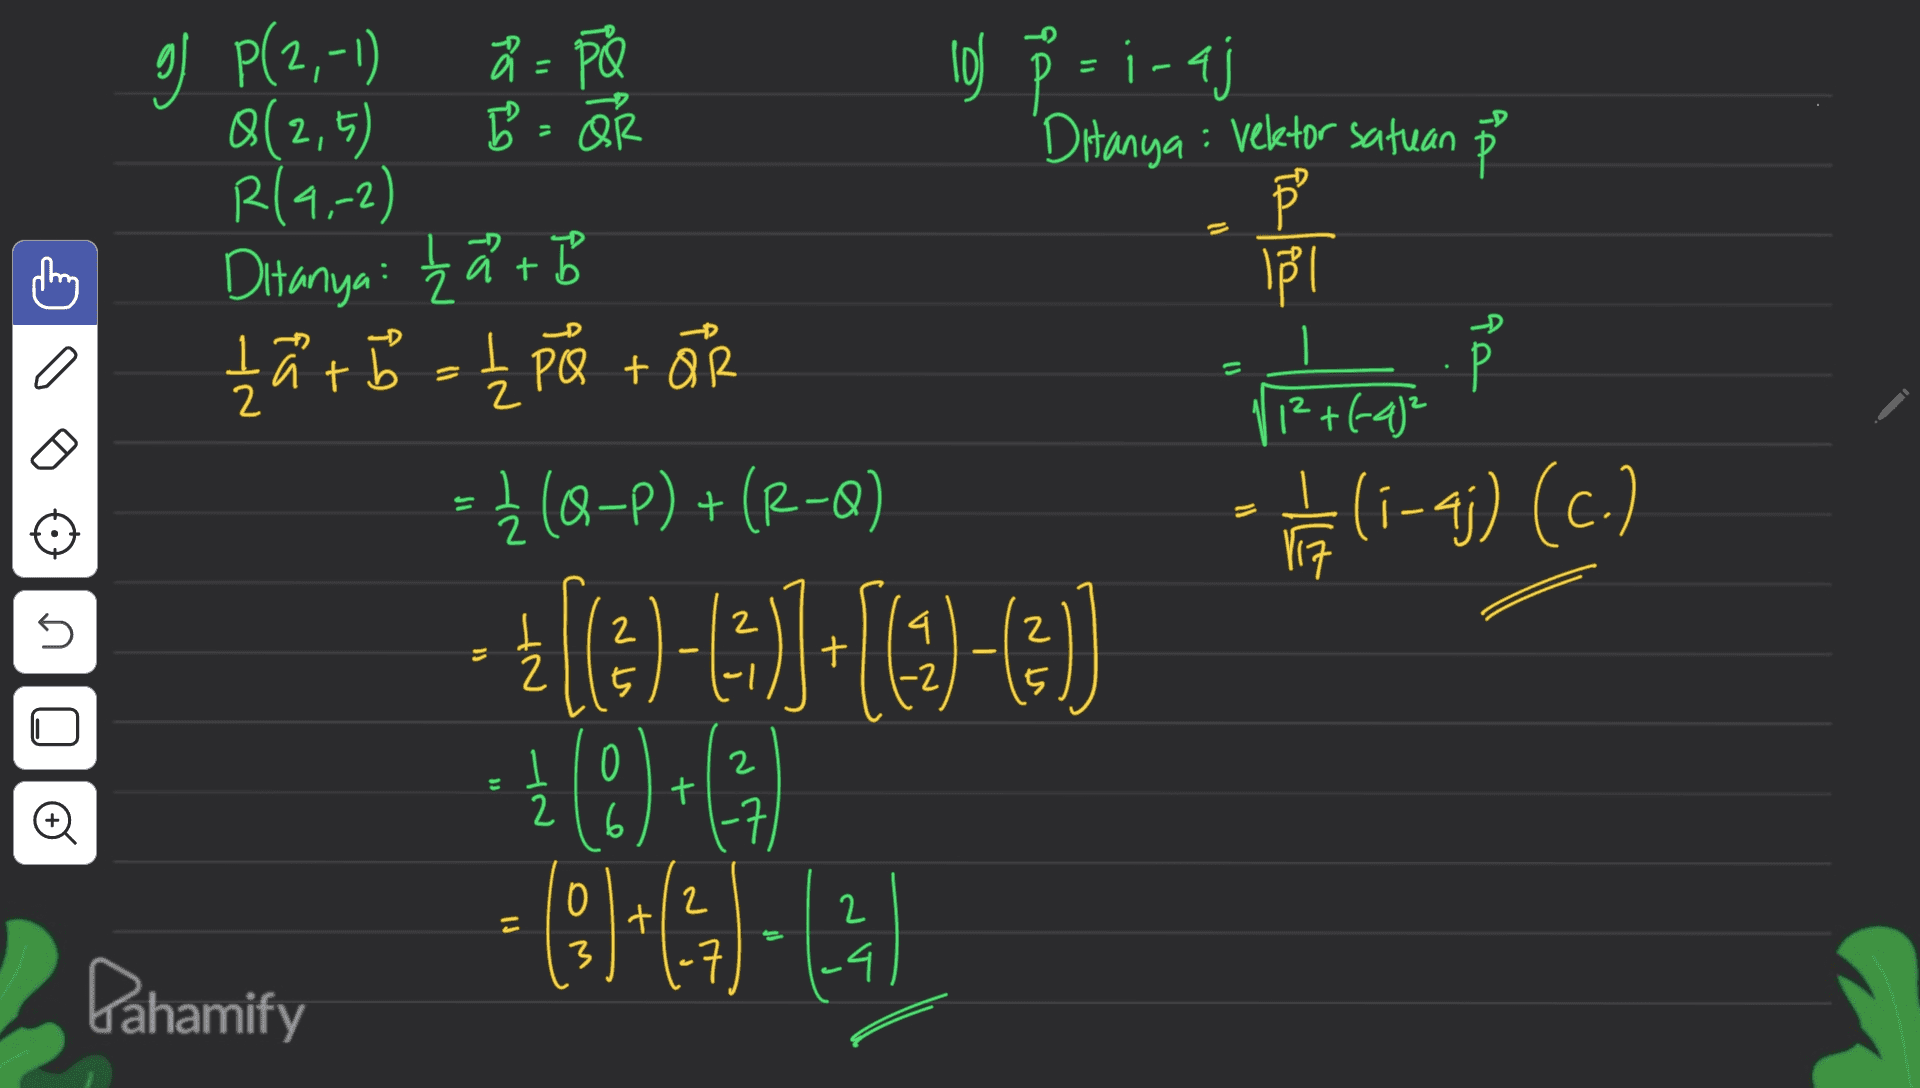 9) P(2,-1) a⃗ = PQ⃗
Q(2,5) b⃗ = QR⃗
R(4,-2)
Ditanya: 1/2 a⃗ + b⃗
1/2 a⃗ + b⃗ = 1/2 PQ⃗ + QR⃗
= 1/2 (Q-P) + (R-Q)
= 1/2 [(2 5) - (2 -1)] + [(4 -2) - (2 5)]
= 1/2 (0 6) + (2 -7)
= (0 3) + (2 -7) = (2 -4)
10) p⃗ = i - 4j
Ditanya : Vektor satuan p⃗
= p⃗ / |p⃗|
= 1/√(1² + (-4)²) . p⃗
= 1/√17 (i - 4j) (C.)
Pahamify